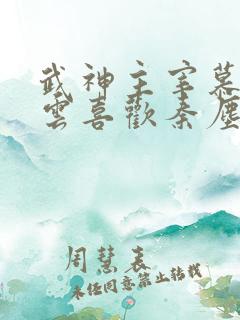 武神主宰慕
雲喜歡秦塵
周慧表
未經同意禁止轉載